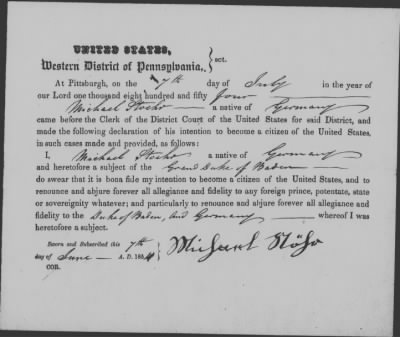 UNITED STATES,
Western District of Pennsylvania, } sct.
At Pittsburgh, on the 7th day of July in the year of
our Lord one thousand eight hundred and fifty four
Michael Stoehr a native of Germany
came before the Clerk of the District Court of the United States for said District, and
made the following declaration of his intention to become a citizen of the United States,
in such cases made and provided, as follows:
I, Michael Stoehr a native of Germany
and heretofore a subject of the Grand Duke of Baden
do swear that it is bona fide my intention to become a citizen of the United States, and to
renounce and abjure forever all allegiance and fidelity to any foreign prince, potentate, state
or sovereignty whatever; and particularly to renounce and abjure forever all allegiance and
fidelity to the Duke of Baden, and Germany whereof I was
heretofore a subject.
Sworn and Subscribed this 7th
day of June A. D. 1854 } Michael Stöhr
CON.